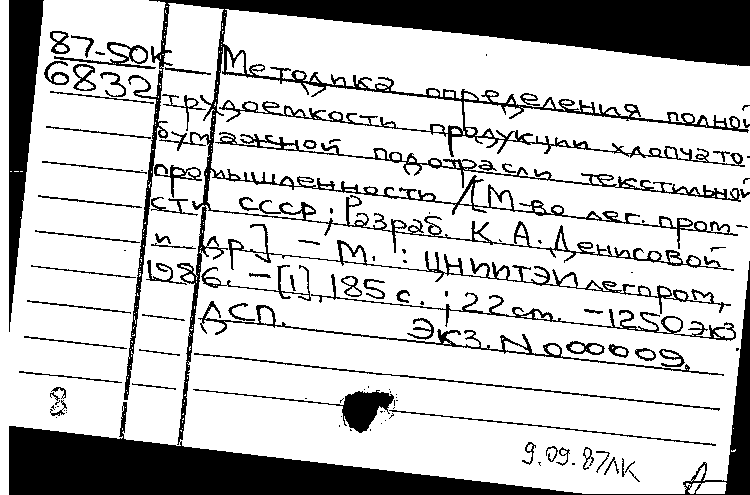 87-50к
6832
Методика определения полной
трудоемкости продукции хлопчато-
бумажной подотрасли текстильной
промышленности /[М-во лег. пром-
сти СССР; Разраб. К.А. Денисовой
и др]. - М. : ЦНИИТЭИлегпром,
1986. - [1], 185 с. ; 22 см. - 1250 экз
ДСП. Экз. N 000009.
8
9.09.87ЛК